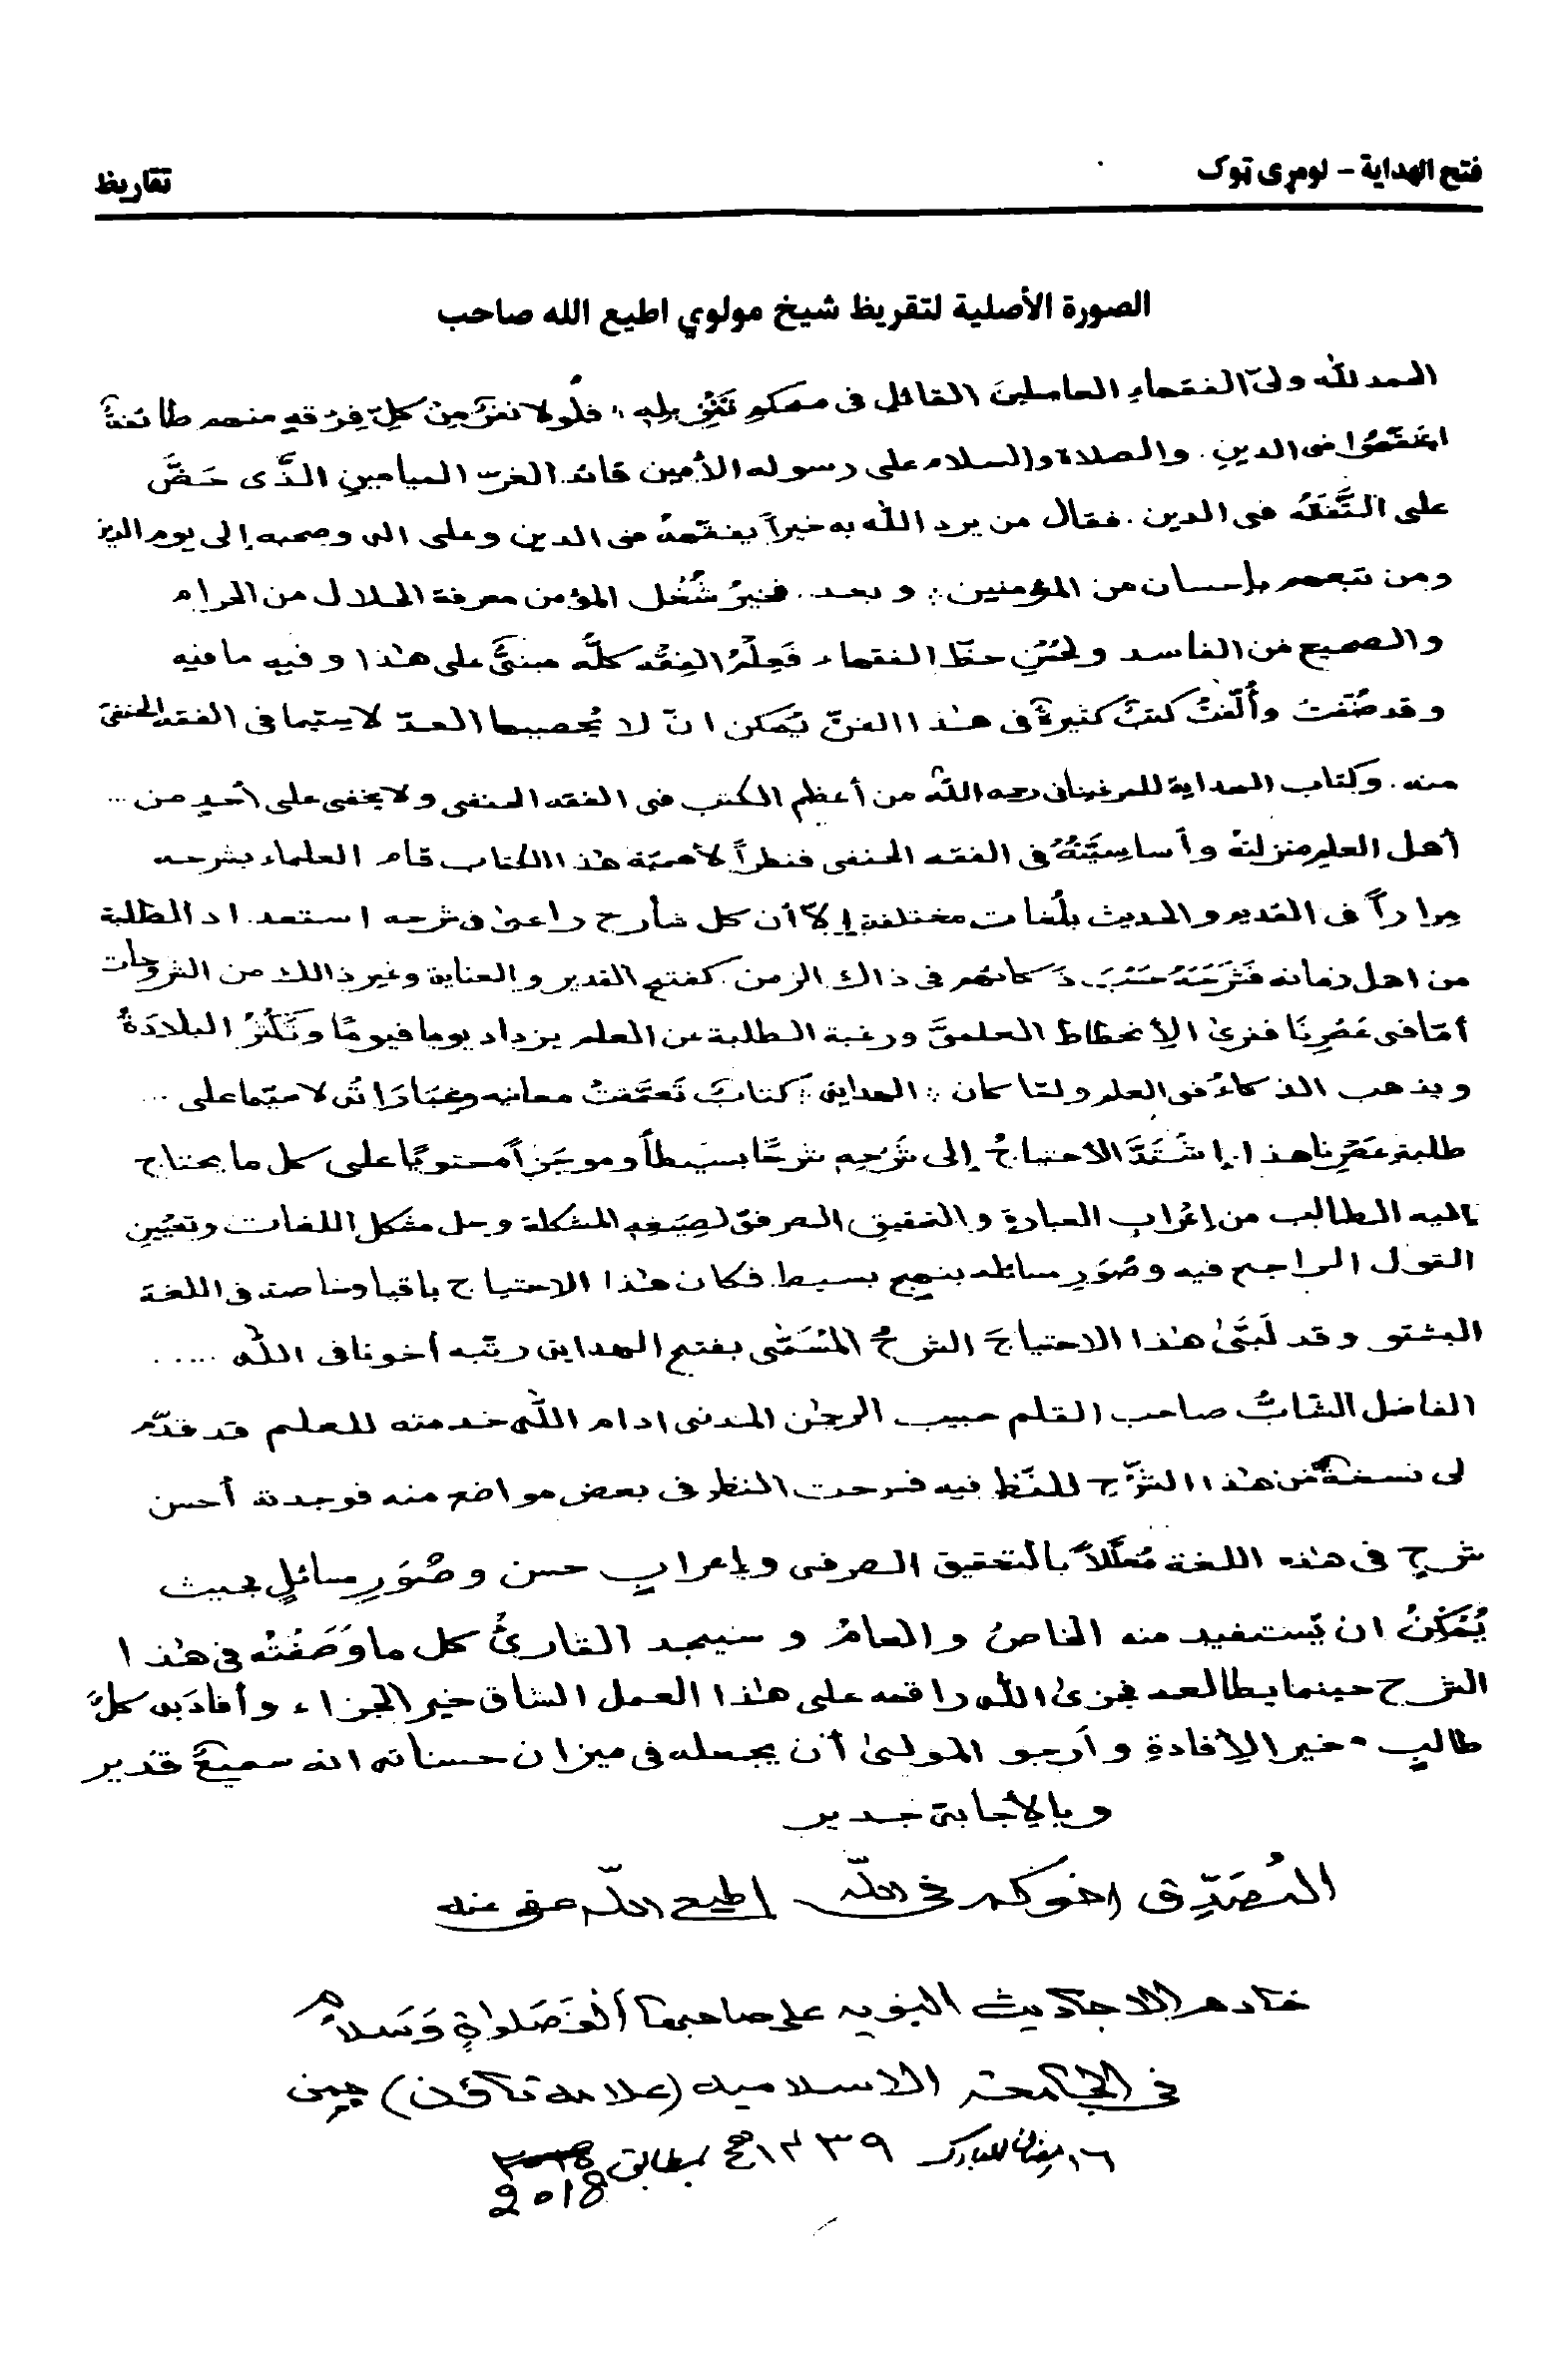 فتح الهداية - لومړى ټوک
تقاريظ
الصورة الأصلية لتقريظ شيخ مولوي اطيع الله صاحب
الحمد لله ولىّ الفقهاءِ العاملينَ القائلِ فى محكمِ تَنْزِيلِهِ فَلَولا نفرَ مِنْ كلِّ فِرْقةٍ منهم طائفةٌ
ليتفقّهُوا فى الدينِ . والصلاة والسلام على رسوله الأمين قائد الغرّ الميامينِ الذَّى حَضَّ
على التَّفَقُّه فى الدين . فقال من يرد الله به خيراً يفقّههُ فى الدين وعلى اله وصحبه إلى يوم الدين
ومن تبعهم بإحسان من المؤمنين: وبعد . فخيرُ شُغْلِ المؤمن معرفة الحلال من الحرام
والصحيح من الفاسد ولحُسْنِ حظّ الفقهاء فَعِلْمُ الفِقْه كلُّه مبنىٌّ على هٰذا وفيه مافيه
وقد صُنّفتْ وأُلّفتْ كتبٌ كثيرةٌ فى هٰذا الفنّ يُمكن انّ لا يُحصيها العدّ لاسيّما فى الفقه الحنفىّ
منه . وكتاب الهداية للمرغينانى رحمه الله من أعظم الكتب فى الفقه الحنفى ولا يخفى على أحدٍ من ...
أهل العلم منزلتهُ وأساسيّتُهُ فى الفقه الحنفى فنظراً لأهميّة هٰذا الكتاب قام العلماء بشرحه
مِراراً فى القديم والحديث بلُغات مختلفةٍ إلاّ أن كل شارح راعىٰ فى شرحه استعداد الطلبة
من اهل زمانه فَشَرَحَهُ حَسْبَ ذَكائهم فى ذاك الزمن كفتح القدير والعناية وغير ذالك من الشروحات
أمّا فى عَصْرِنَا فنرىٰ الإنحطاط العلمىَّ ورغبة الطلبة عن العلم يزداد يوما فيومًا وتَكْثُرُ البلادَةُ
ويذهب الذكاءُ فى العلم ولمّا كان : الهداية : كتابٌ تَعمَّقتْ معانيه وعِبَارَاتُه لاسيّما على ...
طلبةِ عَصْرِنا هذا إشْتَدَّ الاحتياجُ إلى شَرْحِهِ شرحًا بسيطاً وموجَزاً محتويًا على كل ما يحتاج
إليه الطالب من إعْرابِ العبارةِ والتحقيقِ الصرفىّ لصِيَغِهِ المشكلة وحل مشكل اللغات وتعيينِ
القول الراجح فيه وصُوَرِ مسائله بنهج بسيط فكان هٰذا الاحتياج باقيا وخاصة فى اللغة
البشتو وقد لَبّىٰ هٰذا الاحتياجَ الشرحُ المُسَمّٰى بفتح الهداية رتّبه أخونا فى الله .....
الفاضل الشابُّ صاحب القلم حبيب الرحمٰن المدنى ادام الله خدمته للعلم قد قدّم
لى نسخةً من هٰذا الشرْح للنظر فيه فسرحت النظر فى بعض مواضع منه فوجدته أحسن
شرحٍ فى هٰذه اللغة مُعلّلاً بالتحقيق الصرفى وإعرابٍ حسن وصُوَرِ مسائلٍ بحيث
يُمْكِنُ ان يّستفيد منه الخاصُ والعامُ وسيجد القارئُ كل ما وَصَفْتُه فى هٰذا
الشرح حينما يطالعه فجزىٰ الله راقمه على هٰذا العمل الشاق خير الجزاء وأفادَبه كلَّ
طالبٍ خير الإفادةِ وأرجو المولىٰ أن يجعله فى ميزان حسناته انه سميعٌ قدير
وبالإجابة جدير
المُصَدِّق اخوكم فى الله اطيع الله عفى عنه
خادم الاحاديث النبويه على صاحبها ألف صَلواةٍ وَسَلامٌ
فى الجامعة الاسلاميه (علامه تاكون) چمن
١٦ رمضان المبارك ١٤٣٩ هج بمطابق
2018